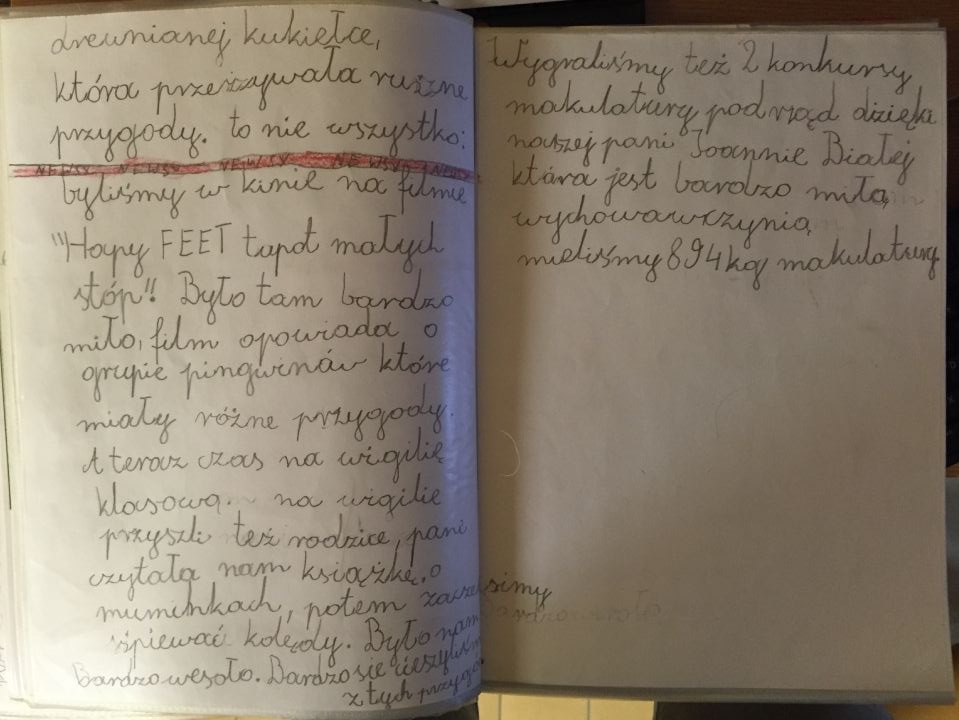 drewnianej kukiełce,
która przeżywała ruzne
przygody. to nie wszystko:
NEWSY NEWSY NEWSY NEWSY NEWSY
byliśmy w kinie na filmie
"Hapy FEET tupot małych
stóp"! Było tam bardzo
miło, film opowiada o
grupie pingwinów które
miały różne przygody.
A teraz czas na wigilię
klasową. na wigilie
przyszli też rodzice, pani
czytała nam książkę, o
muminkach, potem zaczelismy
śpiewać kolędy. Było nam
Bardzo wesoło. Bardzo sie cieszyliśm
z tych przygó
Wygraliśmy też 2 konkursy
makulatury pod rząd dzięki
naszej pani Joannie Białej
która jest bardzo miłą
wychowawczynią
mieliśmy 894 kg makulatury